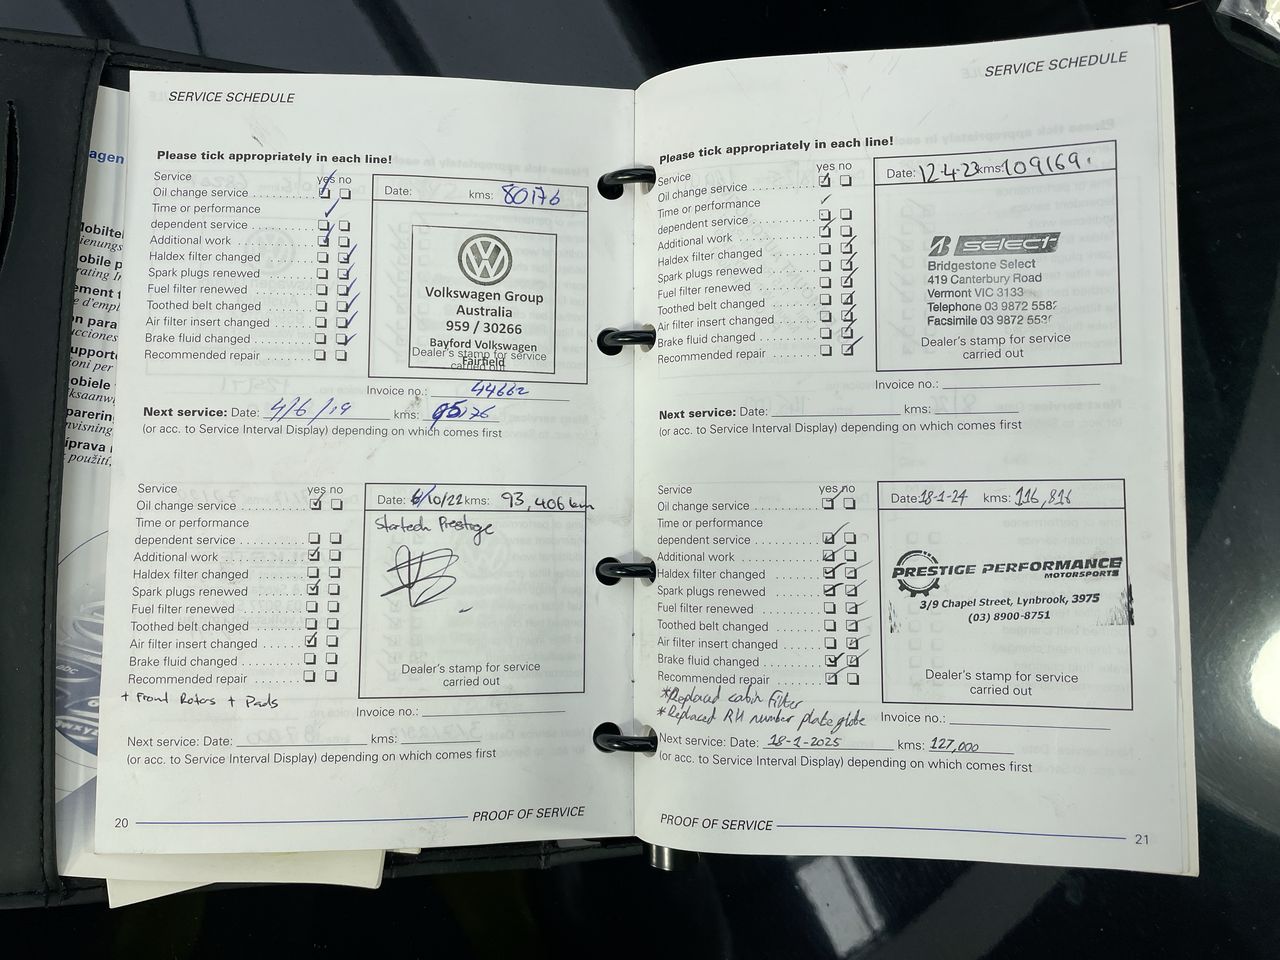 SERVICE SCHEDULE
Please tick appropriately in each line!
Service yes no
Oil change service
Time or performance
dependent service
Additional work
Haldex filter changed
Spark plugs renewed
Fuel filter renewed
Toothed belt changed
Air filter insert changed
Brake fluid changed
Recommended repair
Date: kms: 80176
Volkswagen Group
Australia
959 / 30266
Bayford Volkswagen
Fairfield
Dealer's stamp for service
carried out
Invoice no.: 44662
Next service: Date: 4/6/19 kms: 95176
(or acc. to Service Interval Display) depending on which comes first
Service yes no
Oil change service
Time or performance
dependent service
Additional work
Haldex filter changed
Spark plugs renewed
Fuel filter renewed
Toothed belt changed
Air filter insert changed
Brake fluid changed
Recommended repair
+ Front Rotors + Pads
Date: 6/10/22 kms: 93,406 km
Startech Prestige
Dealer's stamp for service
carried out
Invoice no.:
Next service: Date: kms:
(or acc. to Service Interval Display) depending on which comes first
20 PROOF OF SERVICE
SERVICE SCHEDULE
Please tick appropriately in each line!
Service yes no
Oil change service
Time or performance
dependent service
Additional work
Haldex filter changed
Spark plugs renewed
Fuel filter renewed
Toothed belt changed
Air filter insert changed
Brake fluid changed
Recommended repair
Date: 12-4-23 kms: 109169.
SELECT
Bridgestone Select
419 Canterbury Road
Vermont VIC 3133
Telephone 03 9872 5585
Facsimile 03 9872
Dealer's stamp for service
carried out
Invoice no.:
Next service: Date: kms:
(or acc. to Service Interval Display) depending on which comes first
Service yes no
Oil change service
Time or performance
dependent service
Additional work
Haldex filter changed
Spark plugs renewed
Fuel filter renewed
Toothed belt changed
Air filter insert changed
Brake fluid changed
Recommended repair
*Replaced cabin filter
*Replaced RH number plate globe
Date: 18-1-24 kms: 116,816
PRESTIGE PERFORMANCE
MOTORSPORTS
3/9 Chapel Street, Lynbrook, 3975
(03) 8900-8751
Dealer's stamp for service
carried out
Invoice no.:
Next service: Date: 18-1-2025 kms: 127,000
(or acc. to Service Interval Display) depending on which comes first
PROOF OF SERVICE 21